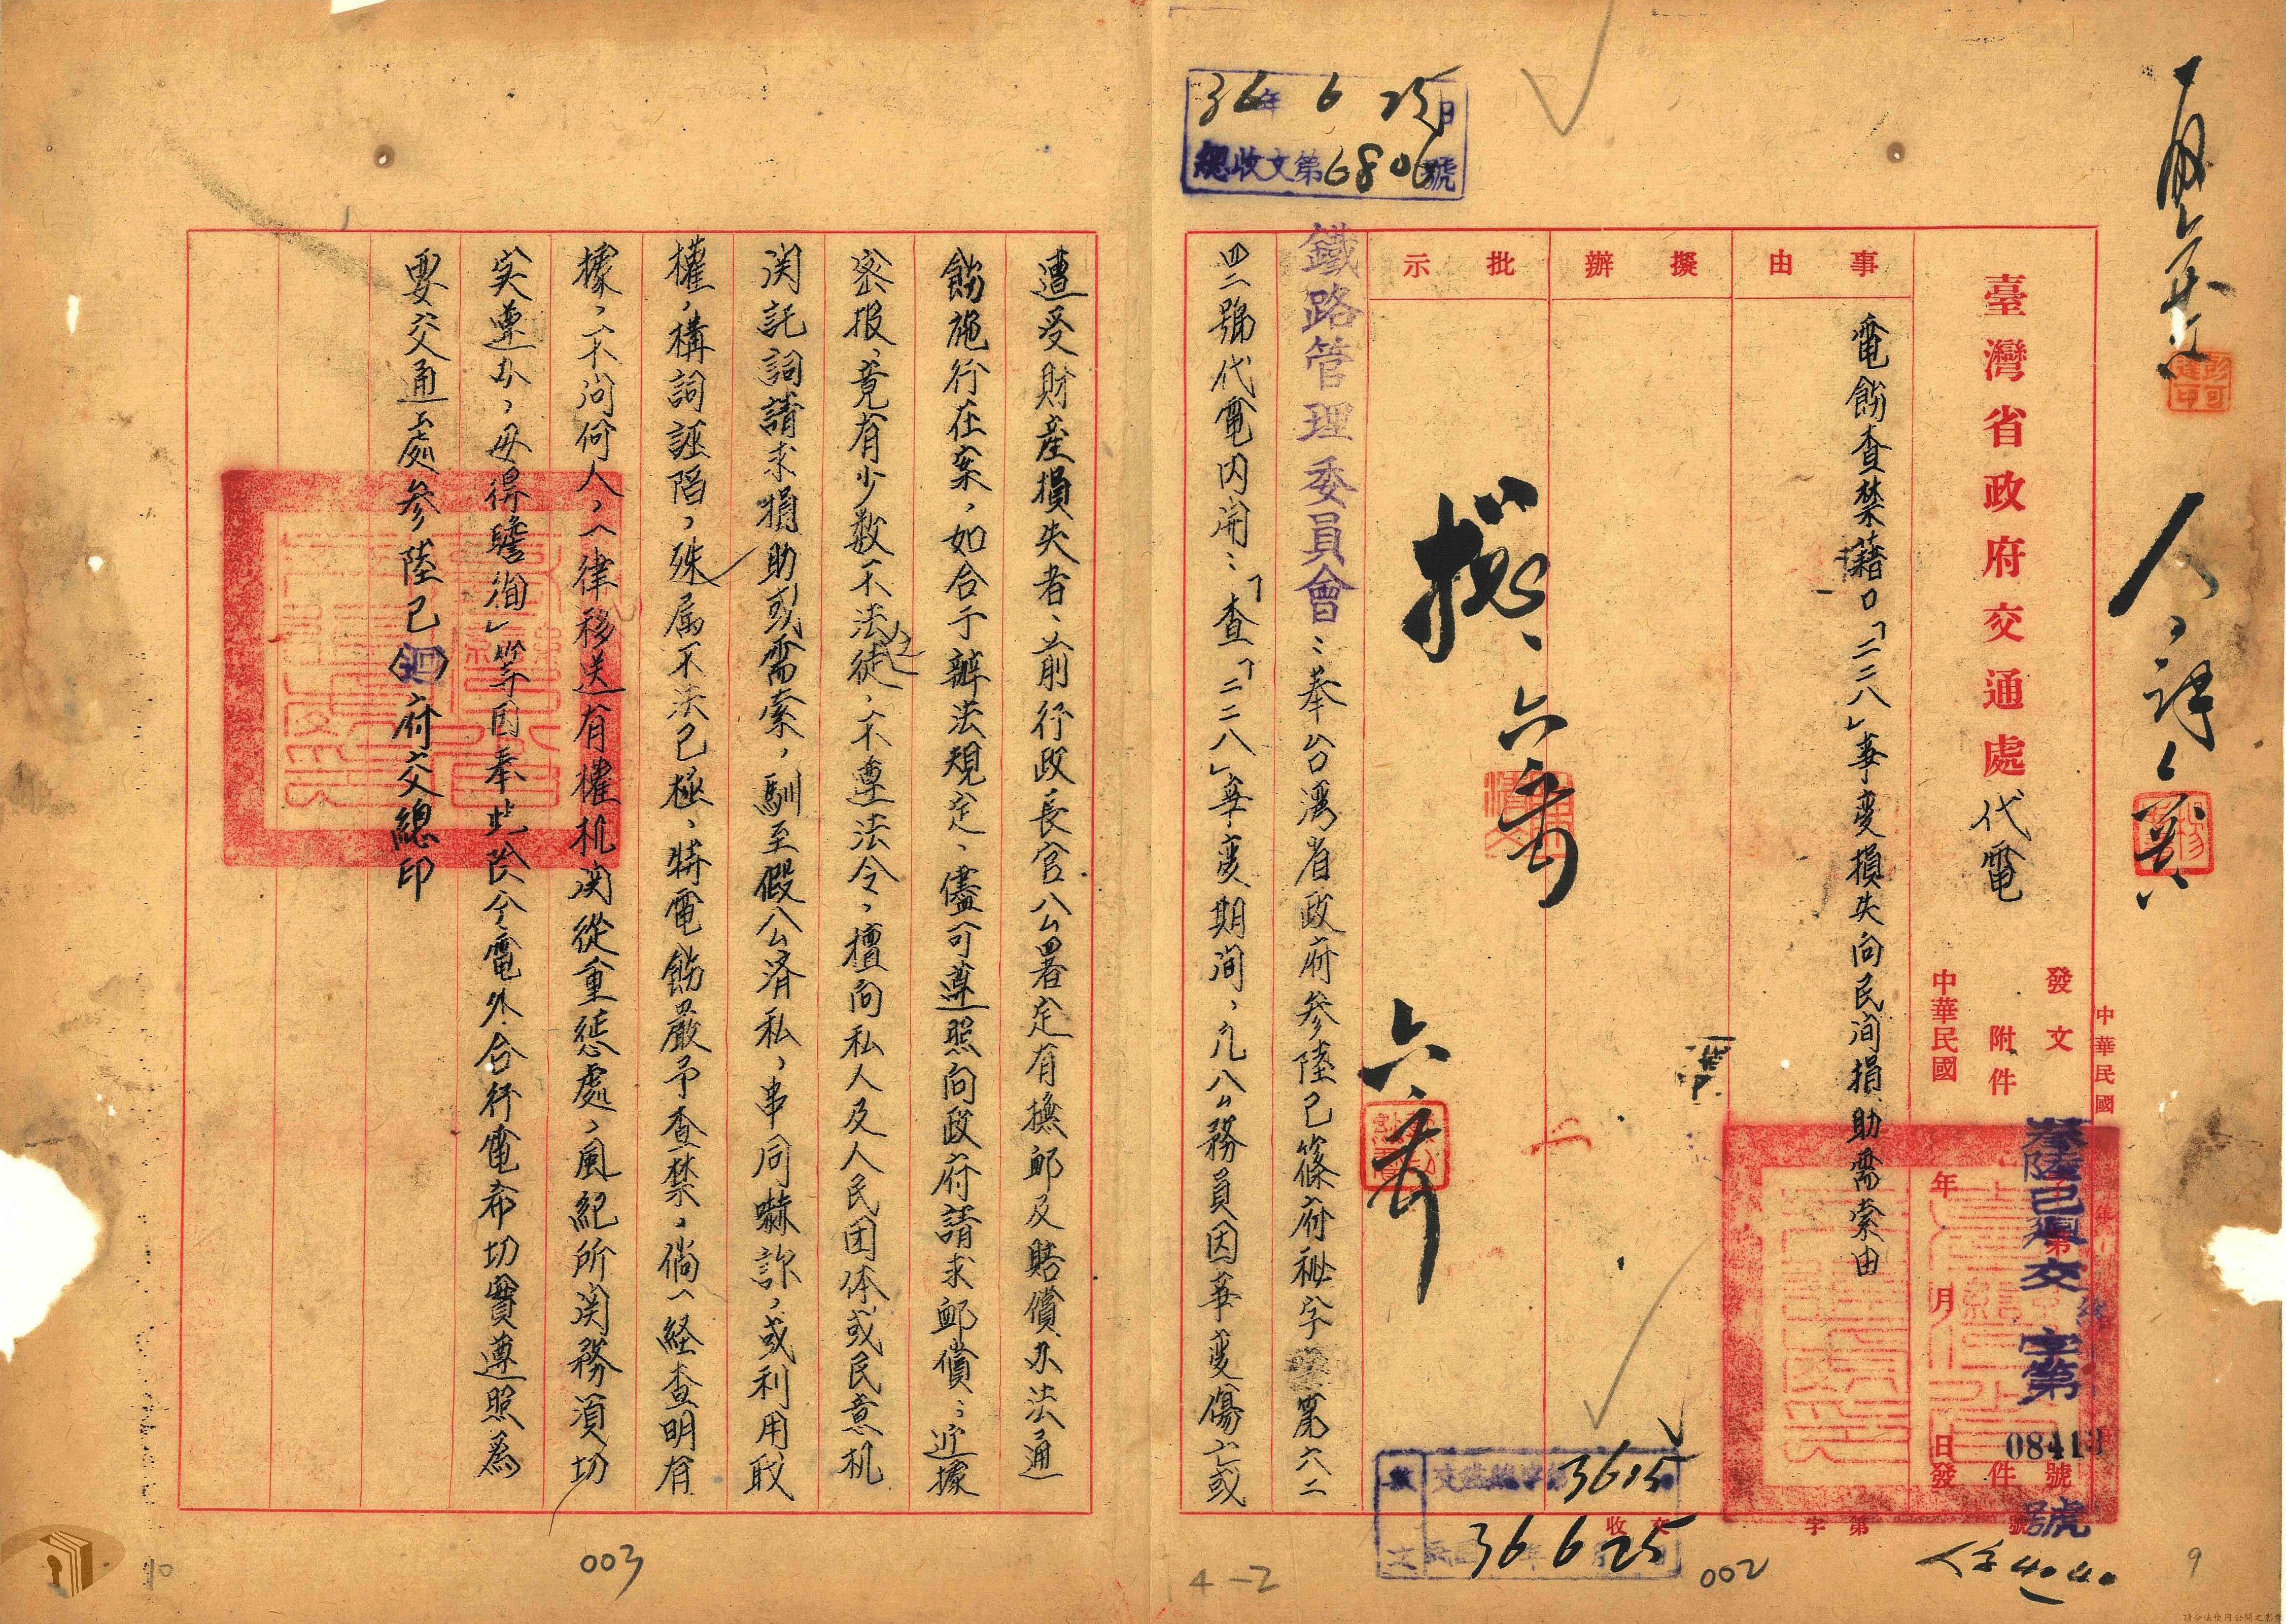 臺灣省政府交通處代電
中華民國
發文
附件
中華民國 年 月 日發
參陸巳 交 字第 號
事由
電飭查禁藉口「二二八」事變損失向民间損助需索由
擬辦
批示
鐵路管理委員會：奉台灣省政府參陸巳篠府秘字第六二
四二號代電内開：「查「二二八」事變期间，凡公務員因事變傷亡或
遭受財產損失者、前行政長官公署定有撫邮及賠償办法通
飭施行在案，如合于辦法規定、儘可遵照向政府請求邮償；近據
密报，竟有少数不法之徒、不遵法令，擅向私人及人民团体或民意机
関託詞請求損助或需索，馴至假公済私，串同嚇詐，或利用取
權，構詞誣陷，殊属不法已極、特電飭嚴予查禁，倘一経查明有
據，不问何人，一律移送有權机関從重惩處，風紀所関務須切
实遵办，毋得瞻徇」等因奉此除分電外合行電希切實遵照為
要交通處参陸巳〈迴〉府交總印
36年6 25日
總收文第6806號
3615
36 6 25
收文 字第 號
人字4040
002
003
4-2
9
10